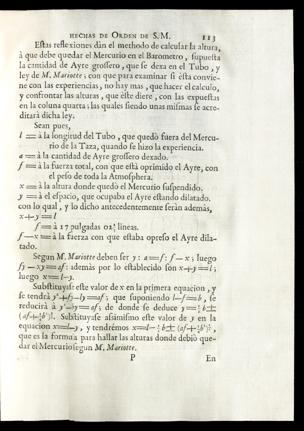 HECHAS DE ORDEN DE S.M. 113
Estas reflexiones dàn el methodo de calcular la altura,
à que debe quedar el Mercurio en el Barometro, supuesta
la cantidad de Ayre grossero, que se dexa en el Tubo, y
ley de M. Mariotte; con que para examinar si èsta convie-
ne con las experiencias, no hay mas, que hacer el calculo,
y confrontar las alturas, que èste diere, con las expuestas
en la coluna quarta; las quales siendo unas mismas se acre-
ditarà dicha ley.
Sean pues,
l = à la longitud del Tubo, que quedò fuera del Mercu-
rio de la Taza, quando se hizo la experiencia.
a = à la cantidad de Ayre grossero dexado.
f = à la fuerza total, con que està oprimido el Ayre, con
el peso de toda la Atmosphera.
x = à la altura donde quedò el Mercurio suspendido.
y = à el espacio, que ocupaba el Ayre estando dilatado.
con lo qual, y lo dicho antecedentemente seràn además,
x+y=l
f = à 17 pulgadas 02¼ lineas.
f−x = à la fuerza con que estaba opreso el Ayre dila-
tado.
Segun M. Mariotte deben ser y : a = f : f−x; luego
fy−xy=af: además por lo establecido son x+y=l;
luego x=l−y.
Substituyase este valor de x en la primera equacion, y
se tendrà y²+fy−ly=af; que suponiendo l−f=b, se
reducirà à y²−by=af; de donde se deduce y=½b±
(af+¼b²)½. Substituyase assimismo este valor de y en la
equacion x=l−y, y tendrémos x=l−½b±(af+¼b²)½,
que es la formula para hallar las alturas donde debiò que-
dar el Mercurio segun M. Mariotte.
P En